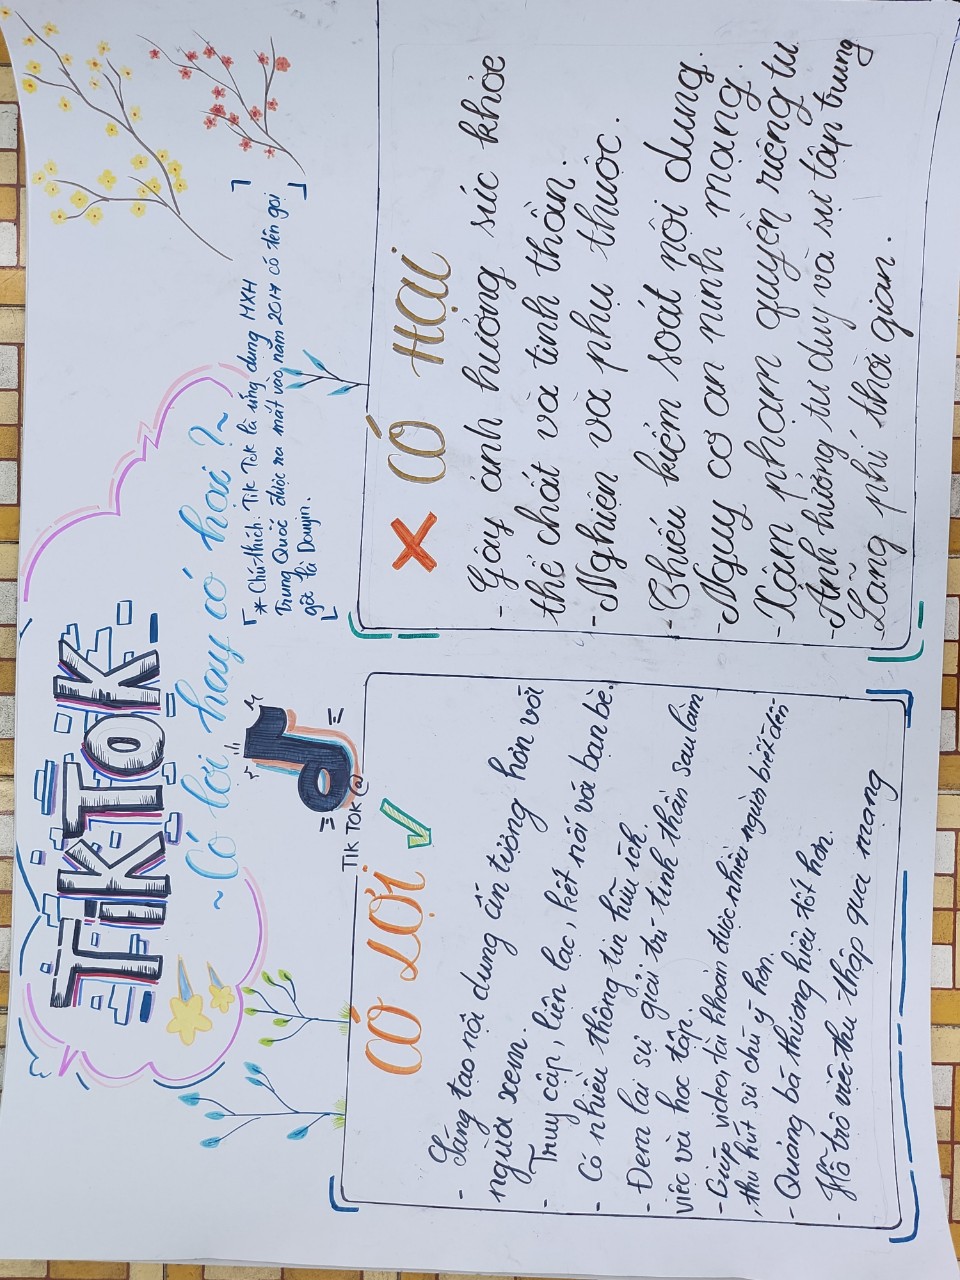 TikTok
~Có lợi hay có hại?~
「* Chú thích. Tik Tok là ứng dụng MXH
Trung Quốc được ra mắt vào năm 2017 có tên gọi
gốc là Douyin. 」
Tik Tok @
CÓ LỢI
- Sáng tạo nội dung ấn tượng hơn với
người xem.
- Truy cập, liên lạc, kết nối với bạn bè.
- Có nhiều thông tin hữu ích.
- Đem lại sự giải trí tinh thần sau làm
việc và học tập.
- Giúp video, tài khoản được nhiều người biết đến
, thu hút sự chú ý hơn.
- Quảng bá thương hiệu tốt hơn.
- Hỗ trợ việc thu thập qua mạng
CÓ HẠI
- Gây ảnh hưởng sức khỏe
thể chất và tinh thần.
- Nghiện và phụ thuộc.
- Thiếu kiểm soát nội dung.
- Nguy cơ an ninh mạng.
- Xâm phạm quyền riêng tư
- Ảnh hưởng tư duy và sự tập trung
- Lãng phí thời gian.